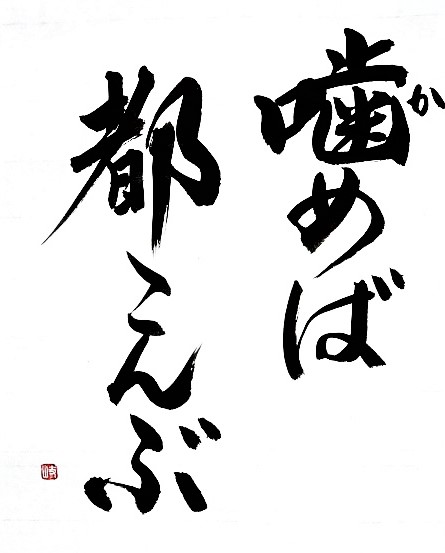 噛めば
か
都こんぶ